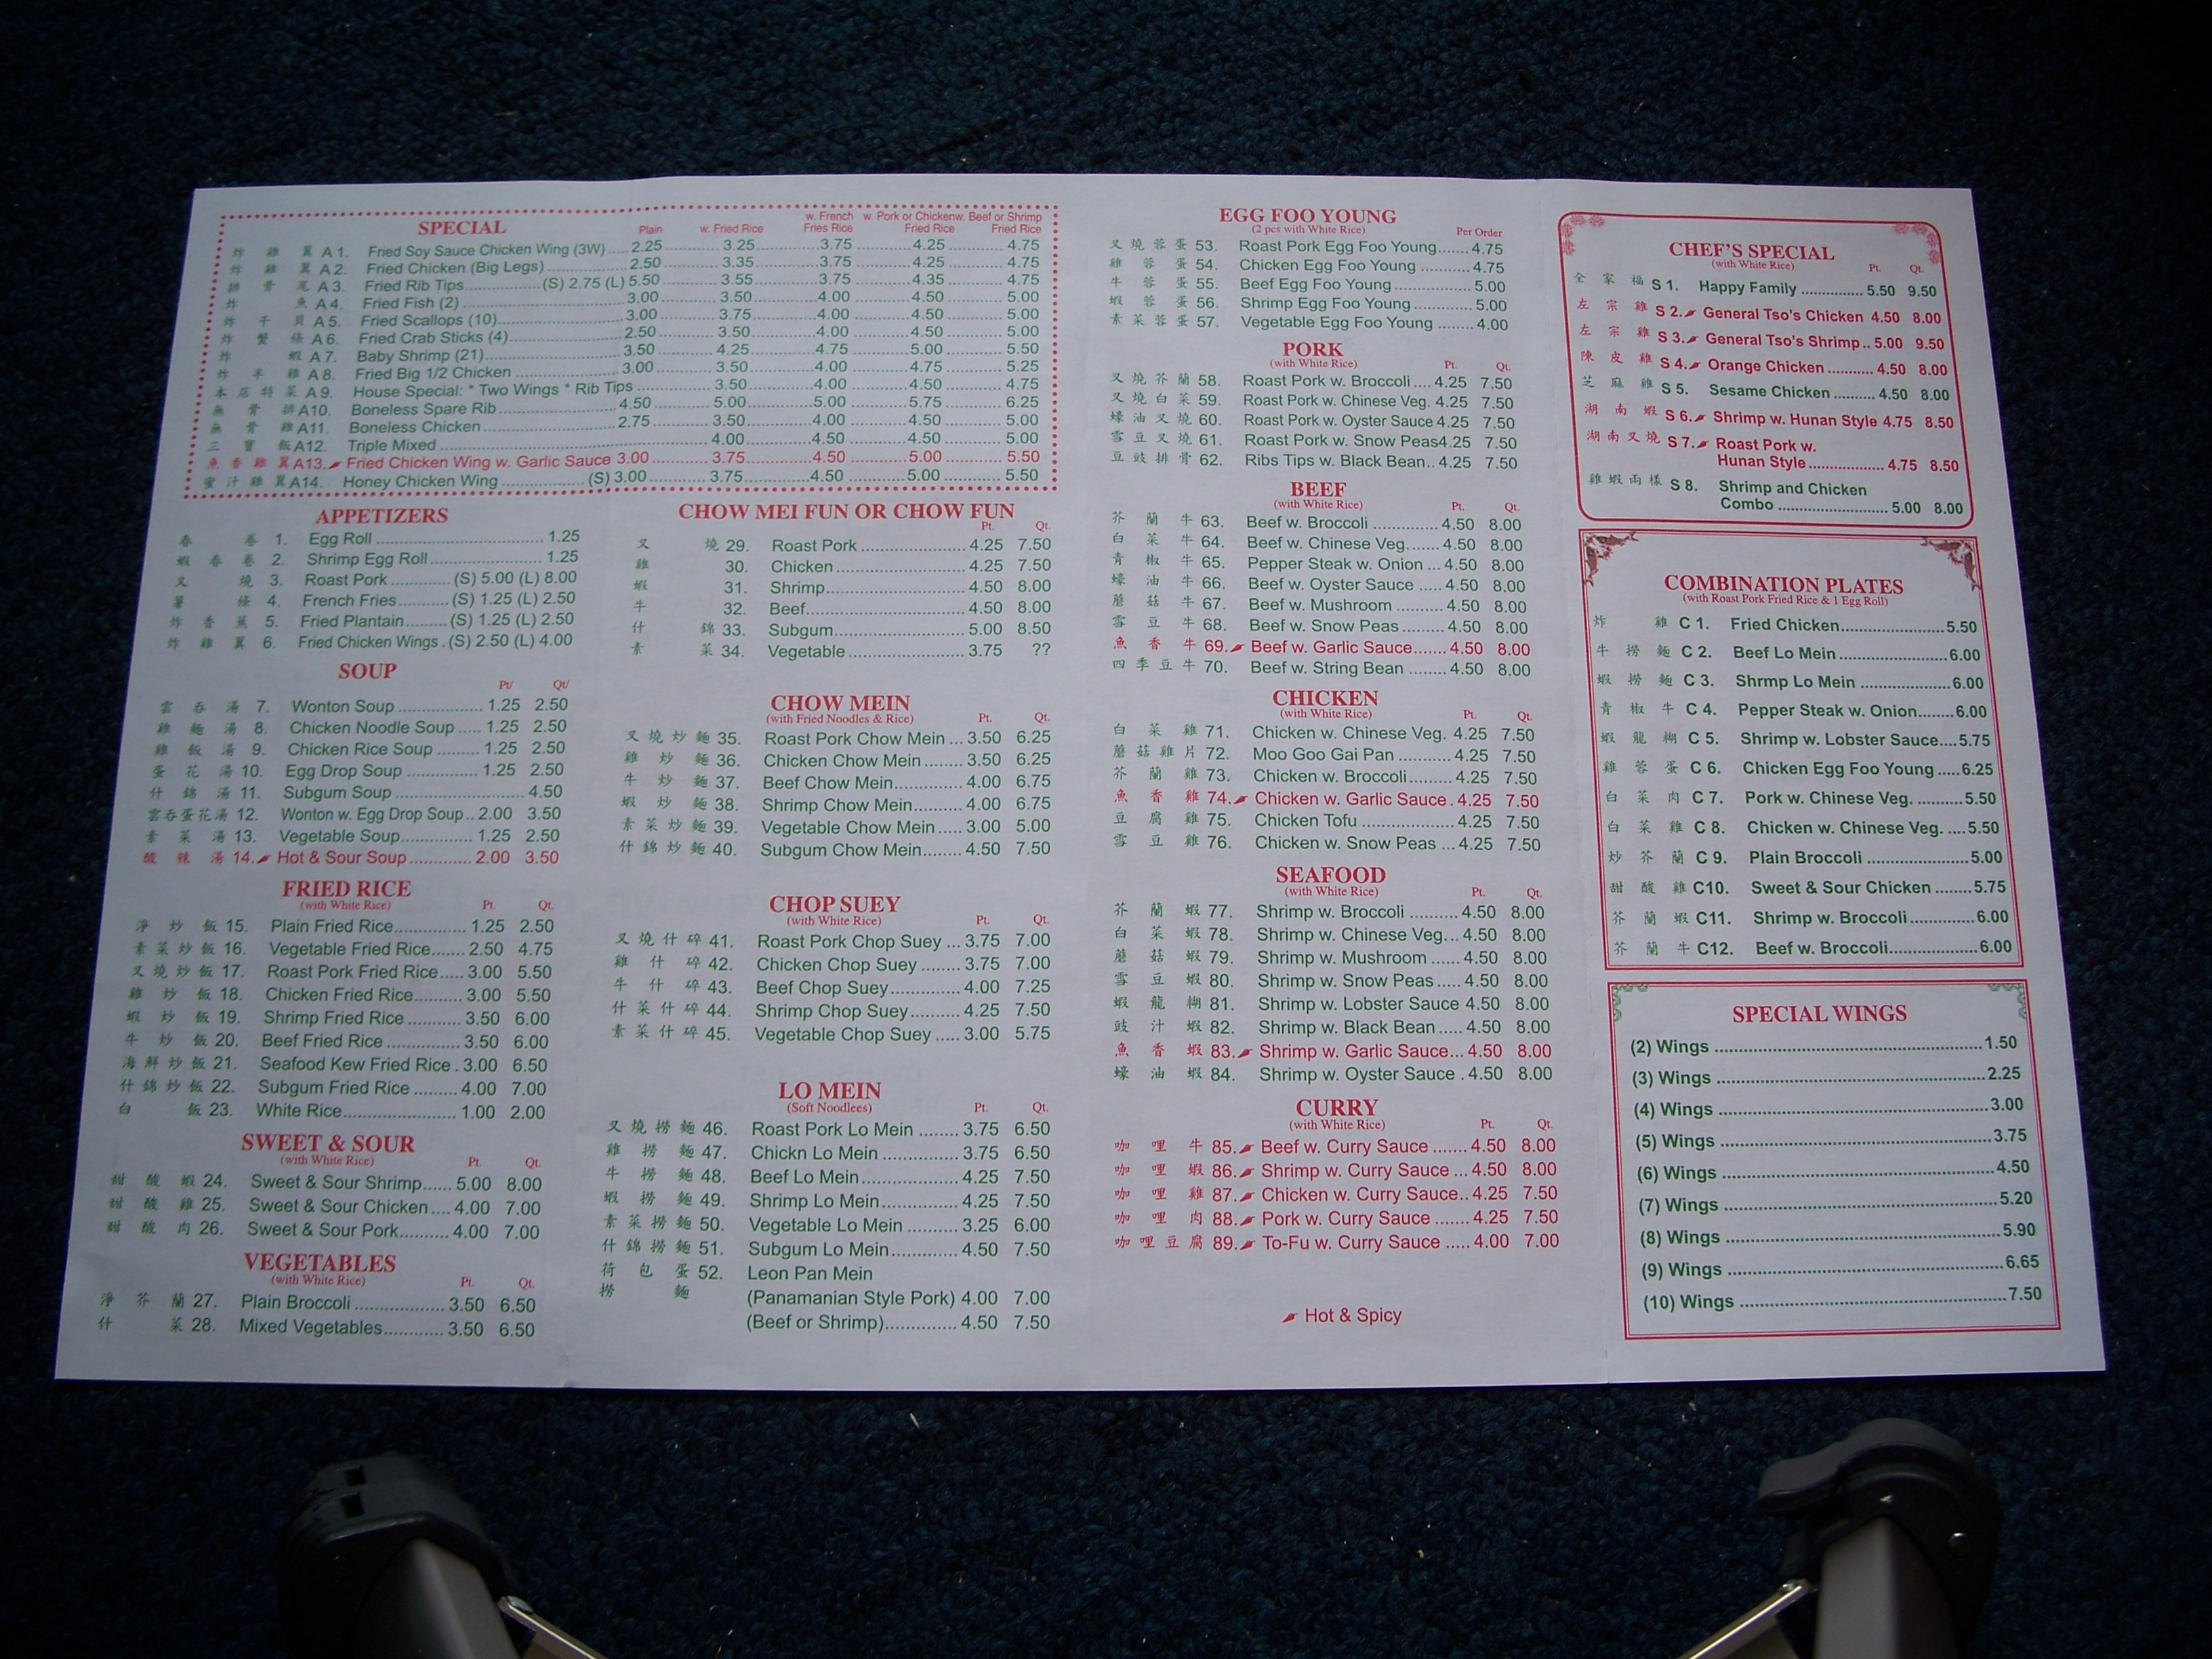 SPECIAL
Plain w. Fried Rice w. French Fries Rice w. Pork or Chicken Fried Rice w. Beef or Shrimp Fried Rice
炸 雞 翼 A 1. Fried Soy Sauce Chicken Wing (3W) .... 2.25 3.25 3.75 4.25 4.75
炸 雞 翼 A 2. Fried Chicken (Big Legs) 2.50 3.35 3.75 4.25 4.75
排 骨 尾 A 3. Fried Rib Tips (S) 2.75 (L) 5.50 3.55 3.75 4.35 4.75
炸 魚 A 4. Fried Fish (2) 3.00 3.50 4.00 4.50 5.00
炸 干 貝 A 5. Fried Scallops (10) 3.00 3.75 4.00 4.50 5.00
炸 蟹 條 A 6. Fried Crab Sticks (4) 2.50 3.50 4.00 4.50 5.00
炸 蝦 A 7. Baby Shrimp (21) 3.50 4.25 4.75 5.00 5.50
炸 半 雞 A 8. Fried Big 1/2 Chicken 3.00 3.50 4.00 4.75 5.25
本 店 特 菜 A 9. House Special: * Two Wings * Rib Tips 3.50 4.00 4.50 4.75
無 骨 排 A10. Boneless Spare Rib 4.50 5.00 5.00 5.75 6.25
無 骨 雞 A11. Boneless Chicken 2.75 3.50 4.00 4.50 5.00
三 寶 飯 A12. Triple Mixed 4.00 4.50 4.50 5.00
魚 香 雞 翼 A13. Fried Chicken Wing w. Garlic Sauce 3.00 3.75 4.50 5.00 5.50
蜜 汁 雞 翼 A14. Honey Chicken Wing (S) 3.00 3.75 4.50 5.00 5.50
APPETIZERS
春 卷 1. Egg Roll 1.25
蝦 春 卷 2. Shrimp Egg Roll 1.25
叉 燒 3. Roast Pork (S) 5.00 (L) 8.00
薯 條 4. French Fries (S) 1.25 (L) 2.50
炸 香 蕉 5. Fried Plantain (S) 1.25 (L) 2.50
炸 雞 翼 6. Fried Chicken Wings . (S) 2.50 (L) 4.00
SOUP
Pt/ Qt/
雲 吞 湯 7. Wonton Soup 1.25 2.50
雞 麵 湯 8. Chicken Noodle Soup 1.25 2.50
雞 飯 湯 9. Chicken Rice Soup 1.25 2.50
蛋 花 湯 10. Egg Drop Soup 1.25 2.50
什 錦 湯 11. Subgum Soup 4.50
雲吞蛋花湯 12. Wonton w. Egg Drop Soup .. 2.00 3.50
素 菜 湯 13. Vegetable Soup 1.25 2.50
酸 辣 湯 14. Hot & Sour Soup 2.00 3.50
FRIED RICE
(with White Rice) Pt. Qt.
淨 炒 飯 15. Plain Fried Rice 1.25 2.50
素 菜 炒 飯 16. Vegetable Fried Rice 2.50 4.75
叉 燒 炒 飯 17. Roast Pork Fried Rice 3.00 5.50
雞 炒 飯 18. Chicken Fried Rice 3.00 5.50
蝦 炒 飯 19. Shrimp Fried Rice 3.50 6.00
牛 炒 飯 20. Beef Fried Rice 3.50 6.00
海 鮮 炒 飯 21. Seafood Kew Fried Rice . 3.00 6.50
什 錦 炒 飯 22. Subgum Fried Rice 4.00 7.00
白 飯 23. White Rice 1.00 2.00
SWEET & SOUR
(with White Rice) Pt. Qt.
甜 酸 蝦 24. Sweet & Sour Shrimp 5.00 8.00
甜 酸 雞 25. Sweet & Sour Chicken 4.00 7.00
甜 酸 肉 26. Sweet & Sour Pork 4.00 7.00
VEGETABLES
(with White Rice) Pt. Qt.
淨 芥 蘭 27. Plain Broccoli 3.50 6.50
什 菜 28. Mixed Vegetables 3.50 6.50
CHOW MEI FUN OR CHOW FUN
Pt. Qt.
叉 燒 29. Roast Pork 4.25 7.50
雞 30. Chicken 4.25 7.50
蝦 31. Shrimp 4.50 8.00
牛 32. Beef 4.50 8.00
什 錦 33. Subgum 5.00 8.50
素 菜 34. Vegetable 3.75 ??
CHOW MEIN
(with Fried Noodles & Rice) Pt. Qt.
叉 燒 炒 麵 35. Roast Pork Chow Mein ... 3.50 6.25
雞 炒 麵 36. Chicken Chow Mein 3.50 6.25
牛 炒 麵 37. Beef Chow Mein 4.00 6.75
蝦 炒 麵 38. Shrimp Chow Mein 4.00 6.75
素 菜 炒 麵 39. Vegetable Chow Mein 3.00 5.00
什 錦 炒 麵 40. Subgum Chow Mein 4.50 7.50
CHOP SUEY
(with White Rice) Pt. Qt.
叉 燒 什 碎 41. Roast Pork Chop Suey ... 3.75 7.00
雞 什 碎 42. Chicken Chop Suey 3.75 7.00
牛 什 碎 43. Beef Chop Suey 4.00 7.25
什 菜 什 碎 44. Shrimp Chop Suey 4.25 7.50
素 菜 什 碎 45. Vegetable Chop Suey 3.00 5.75
LO MEIN
(Soft Noodlees) Pt. Qt.
叉 燒 撈 麵 46. Roast Pork Lo Mein 3.75 6.50
雞 撈 麵 47. Chickn Lo Mein 3.75 6.50
牛 撈 麵 48. Beef Lo Mein 4.25 7.50
蝦 撈 麵 49. Shrimp Lo Mein 4.25 7.50
素 菜 撈 麵 50. Vegetable Lo Mein 3.25 6.00
什 錦 撈 麵 51. Subgum Lo Mein 4.50 7.50
荷 包 蛋 52. Leon Pan Mein
撈 麵 (Panamanian Style Pork) 4.00 7.00
(Beef or Shrimp) 4.50 7.50
EGG FOO YOUNG
(2 pcs with White Rice) Per Order
叉 燒 蓉 蛋 53. Roast Pork Egg Foo Young 4.75
雞 蓉 蛋 54. Chicken Egg Foo Young 4.75
牛 蓉 蛋 55. Beef Egg Foo Young 5.00
蝦 蓉 蛋 56. Shrimp Egg Foo Young 5.00
素 菜 蓉 蛋 57. Vegetable Egg Foo Young 4.00
PORK
(with White Rice) Pt. Qt.
叉 燒 芥 蘭 58. Roast Pork w. Broccoli 4.25 7.50
叉 燒 白 菜 59. Roast Pork w. Chinese Veg. 4.25 7.50
蠔 油 叉 燒 60. Roast Pork w. Oyster Sauce 4.25 7.50
雪 豆 叉 燒 61. Roast Pork w. Snow Peas4.25 7.50
豆 豉 排 骨 62. Ribs Tips w. Black Bean.. 4.25 7.50
BEEF
(with White Rice) Pt. Qt.
芥 蘭 牛 63. Beef w. Broccoli 4.50 8.00
白 菜 牛 64. Beef w. Chinese Veg. 4.50 8.00
青 椒 牛 65. Pepper Steak w. Onion ... 4.50 8.00
蠔 油 牛 66. Beef w. Oyster Sauce 4.50 8.00
蘑 菇 牛 67. Beef w. Mushroom 4.50 8.00
雪 豆 牛 68. Beef w. Snow Peas 4.50 8.00
魚 香 牛 69. Beef w. Garlic Sauce 4.50 8.00
四 季 豆 牛 70. Beef w. String Bean 4.50 8.00
CHICKEN
(with White Rice) Pt. Qt.
白 菜 雞 71. Chicken w. Chinese Veg. 4.25 7.50
蘑 菇 雞 片 72. Moo Goo Gai Pan 4.25 7.50
芥 蘭 雞 73. Chicken w. Broccoli 4.25 7.50
魚 香 雞 74. Chicken w. Garlic Sauce . 4.25 7.50
豆 腐 雞 75. Chicken Tofu 4.25 7.50
雪 豆 雞 76. Chicken w. Snow Peas ... 4.25 7.50
SEAFOOD
(with White Rice) Pt. Qt.
芥 蘭 蝦 77. Shrimp w. Broccoli 4.50 8.00
白 菜 蝦 78. Shrimp w. Chinese Veg... 4.50 8.00
蘑 菇 蝦 79. Shrimp w. Mushroom 4.50 8.00
雪 豆 蝦 80. Shrimp w. Snow Peas 4.50 8.00
蝦 龍 糊 81. Shrimp w. Lobster Sauce 4.50 8.00
豉 汁 蝦 82. Shrimp w. Black Bean 4.50 8.00
魚 香 蝦 83. Shrimp w. Garlic Sauce... 4.50 8.00
蠔 油 蝦 84. Shrimp w. Oyster Sauce . 4.50 8.00
CURRY
(with White Rice) Pt. Qt.
咖 哩 牛 85. Beef w. Curry Sauce 4.50 8.00
咖 哩 蝦 86. Shrimp w. Curry Sauce ... 4.50 8.00
咖 哩 雞 87. Chicken w. Curry Sauce.. 4.25 7.50
咖 哩 肉 88. Pork w. Curry Sauce 4.25 7.50
咖 哩 豆 腐 89. To-Fu w. Curry Sauce 4.00 7.00
Hot & Spicy
CHEF'S SPECIAL
(with White Rice) Pt. Qt.
全 家 福 S 1. Happy Family 5.50 9.50
左 宗 雞 S 2. General Tso's Chicken 4.50 8.00
左 宗 雞 S 3. General Tso's Shrimp .. 5.00 9.50
陳 皮 雞 S 4. Orange Chicken 4.50 8.00
芝 麻 雞 S 5. Sesame Chicken 4.50 8.00
湖 南 蝦 S 6. Shrimp w. Hunan Style 4.75 8.50
湖 南 叉 燒 S 7. Roast Pork w.
Hunan Style 4.75 8.50
雞 蝦 兩 樣 S 8. Shrimp and Chicken
Combo 5.00 8.00
COMBINATION PLATES
(with Roast Pork Fried Rice & 1 Egg Roll)
炸 雞 C 1. Fried Chicken 5.50
牛 撈 麵 C 2. Beef Lo Mein 6.00
蝦 撈 麵 C 3. Shrmp Lo Mein 6.00
青 椒 牛 C 4. Pepper Steak w. Onion 6.00
蝦 龍 糊 C 5. Shrimp w. Lobster Sauce 5.75
雞 蓉 蛋 C 6. Chicken Egg Foo Young 6.25
白 菜 肉 C 7. Pork w. Chinese Veg. 5.50
白 菜 雞 C 8. Chicken w. Chinese Veg. 5.50
炒 芥 蘭 C 9. Plain Broccoli 5.00
甜 酸 雞 C10. Sweet & Sour Chicken 5.75
芥 蘭 蝦 C11. Shrimp w. Broccoli 6.00
芥 蘭 牛 C12. Beef w. Broccoli 6.00
SPECIAL WINGS
(2) Wings 1.50
(3) Wings 2.25
(4) Wings 3.00
(5) Wings 3.75
(6) Wings 4.50
(7) Wings 5.20
(8) Wings 5.90
(9) Wings 6.65
(10) Wings 7.50